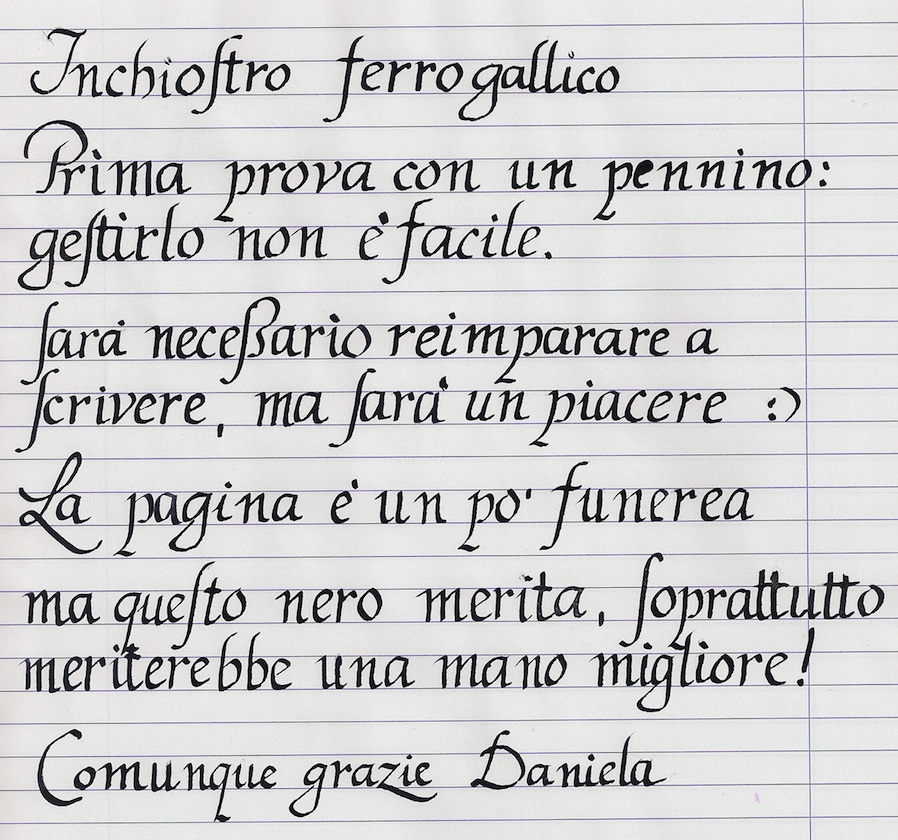 Inchioſtro ferrogallico
Prima prova con un pennino:
geſtirlo non è facile.
ſarà neceßario reimparare a
ſcrivere, ma ſarà un piacere :)
La pagina è un po' funerea
ma queſto nero merita, ſoprattutto
meriterebbe una mano migliore!
Comunque grazie Daniela